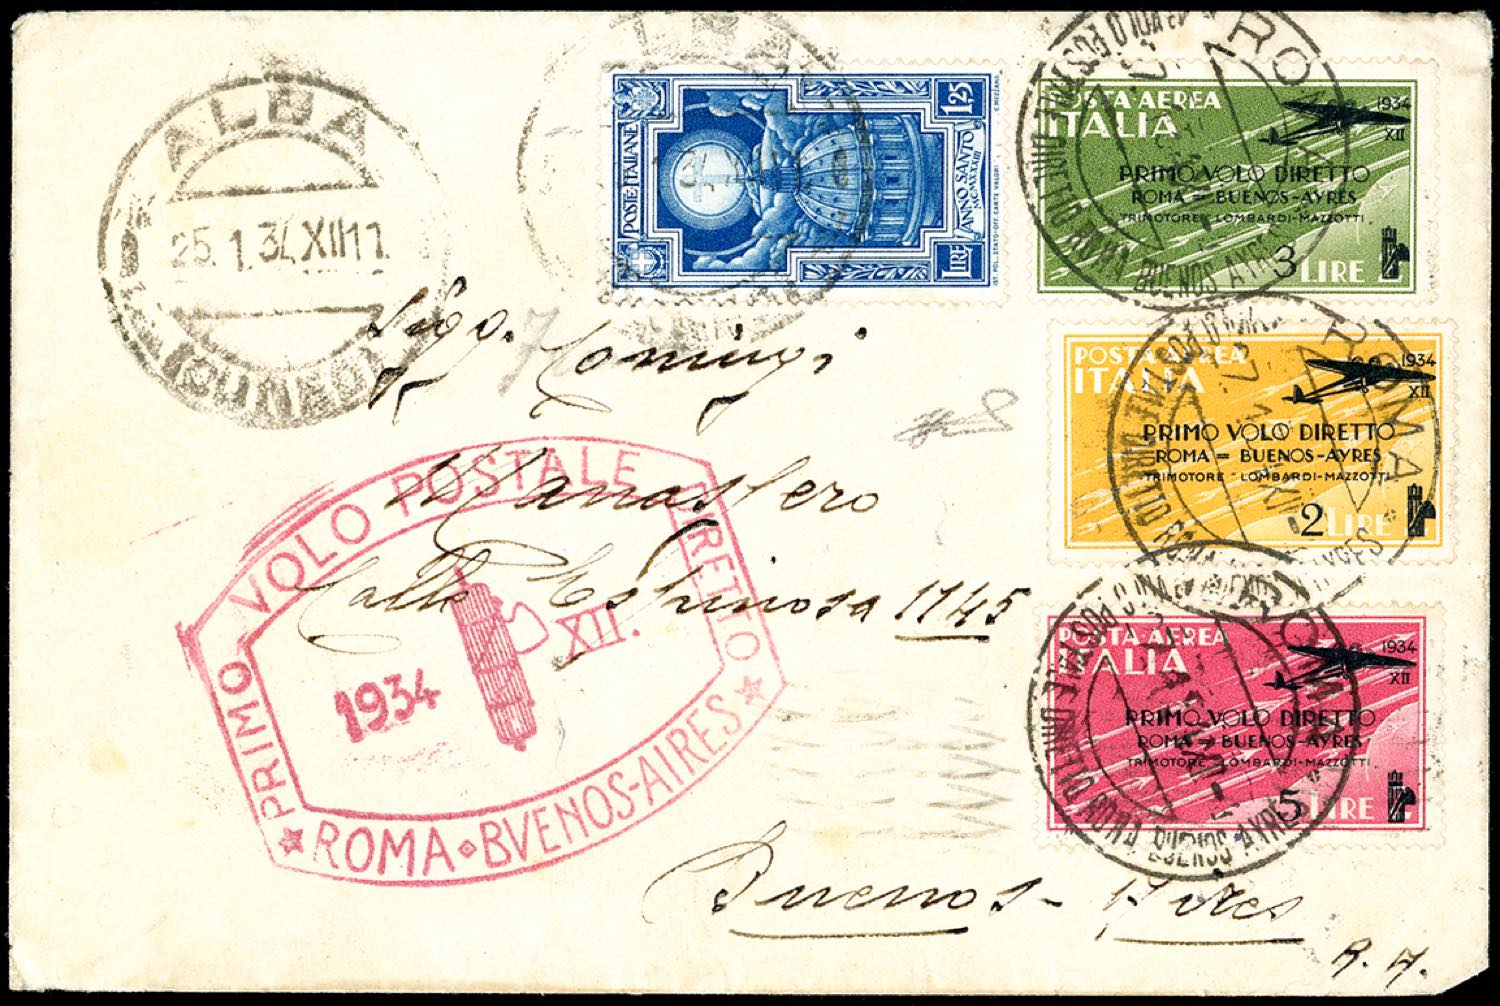 ALBA
25.1.34.XII 11
(CUNEO)
POSTE ITALIANE
1,25
LIRE
ANNO SANTO
MCMXXXIII
POSTA AEREA
ITALIA
1934
XII
PRIMO VOLO DIRETTO
ROMA = BUENOS-AYRES
TRIMOTORE LOMBARDI-MAZZOTTI
3 LIRE
ROMA
ROMA BUENOS-AYRES
POSTA AEREA
ITALIA
1934
XII
PRIMO VOLO DIRETTO
ROMA = BUENOS-AYRES
TRIMOTORE LOMBARDI-MAZZOTTI
2 LIRE
ROMA
POSTA AEREA
ITALIA
1934
XII
PRIMO VOLO DIRETTO
ROMA = BUENOS-AYRES
TRIMOTORE LOMBARDI-MAZZOTTI
5 LIRE
ROMA BUENOS-AYRES
Sigg. Comingi
Manassero
Calle Espinosa 1145
Buenos-Aires
R. A.
PRIMO VOLO POSTALE DIRETTO
1934 XII.
ROMA BVENOS-AIRES